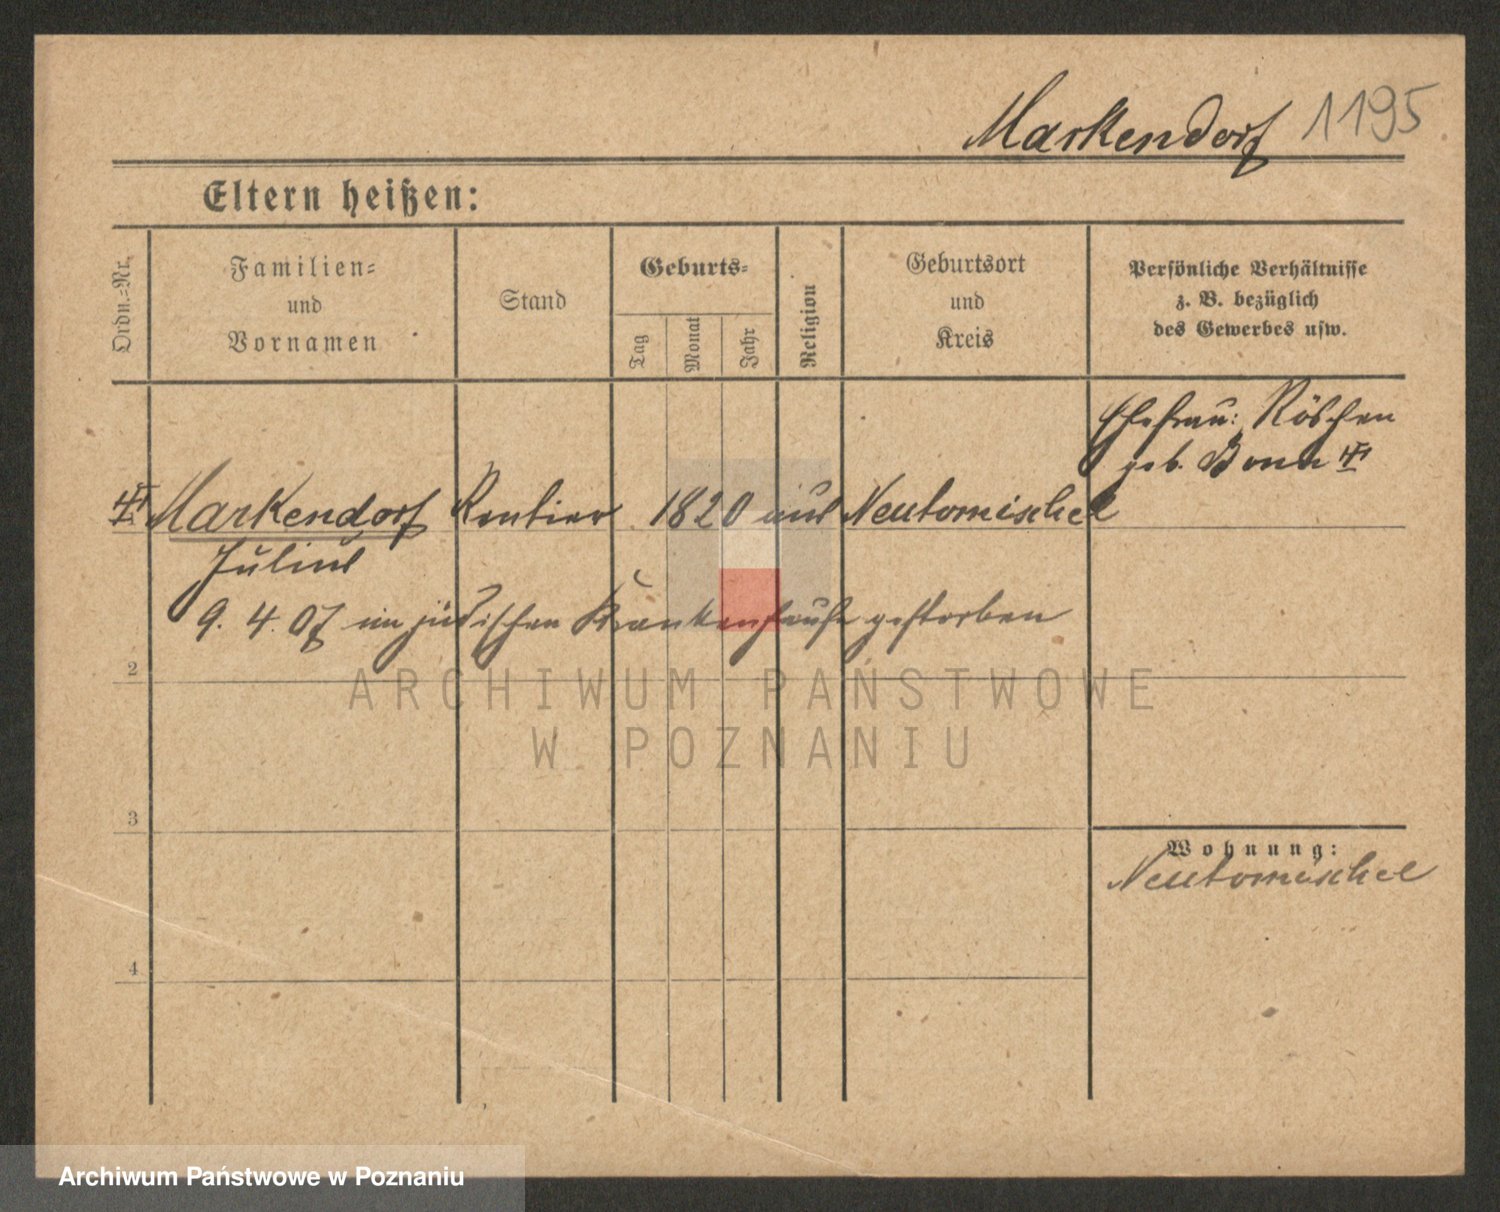 Markendorf 1195
Eltern heißen:
Ordn.-Nr.
Familien-
und
Vornamen
Stand
Geburts-
Tag
Monat
Jahr
Religion
Geburtsort
und
Kreis
Persönliche Verhältnisse
z. B. bezüglich
des Gewerbes usw.
Ehefrau: Röschen
geb. Bonn
Markendorf Rentier 1820 aus Neutomischel
Julius
9. 4. 07 im jüdischen Krankenhause gestorben
2
ARCHIWUM PAŃSTWOWE
W POZNANIU
3
Wohnung:
Neutomischel
4
Archiwum Państwowe w Poznaniu